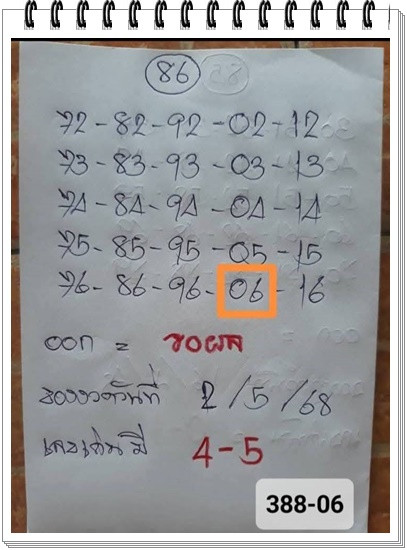 86
72-82-92-02-12
73-83-93-03-13
74-84-94-04-14
75-85-95-05-15
76-86-96-06-16
ออก = ขอผล
ของงวดวันที่ 2/5/68
เลขเด่นมี 4-5
388-06